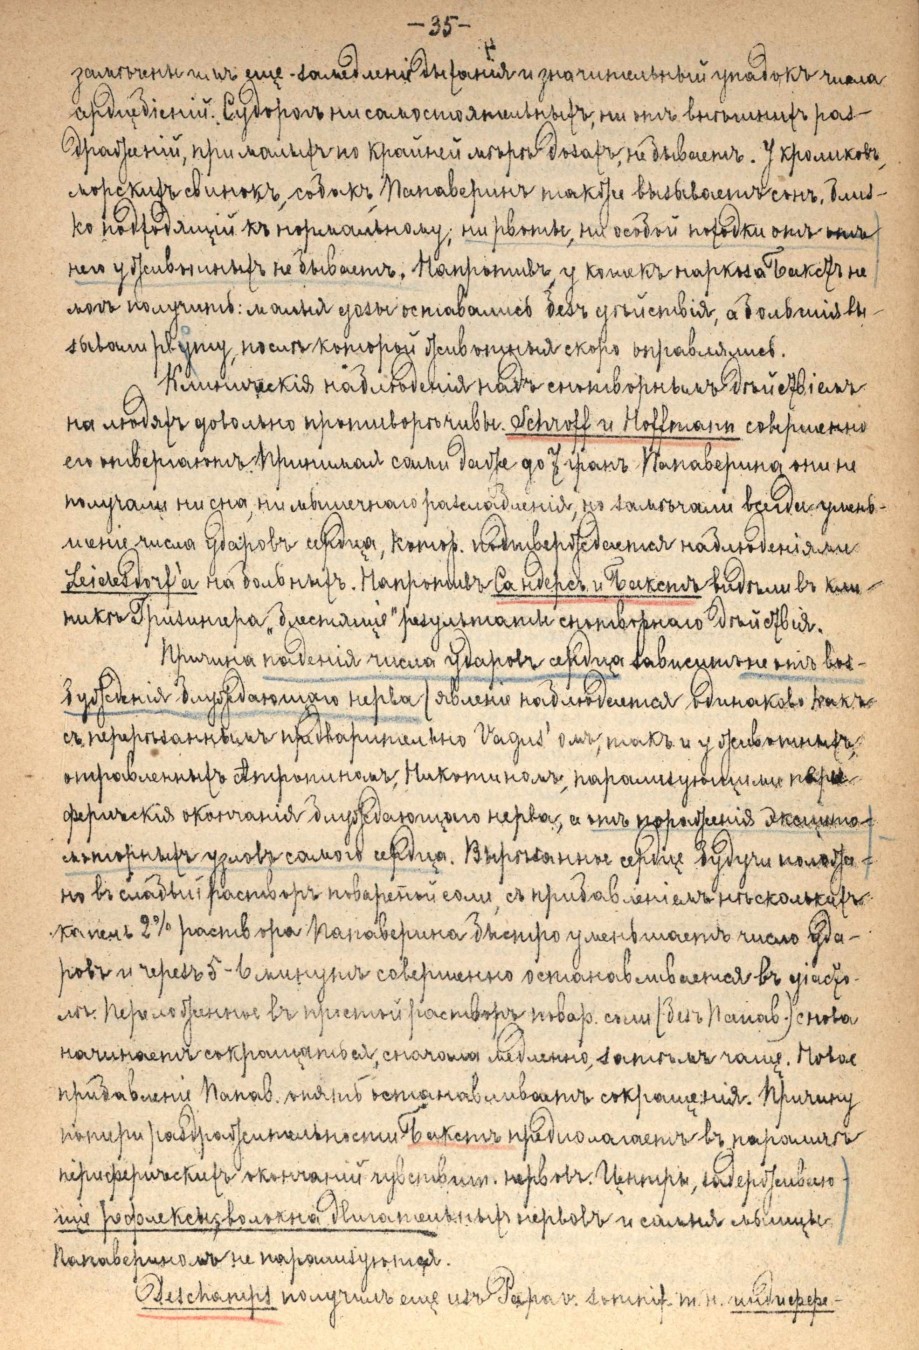 -35-
замѣчены имъ еще замедленіе дыханія и значительный упадокъ числа
сердцебіеній. Судорогъ ни самостоятельныхъ, ни отъ внѣшнихъ раз-
драженій, при малыхъ по крайней мѣрѣ дозахъ, не бываетъ. У кроликовъ,
морскихъ свинокъ, собакъ, Папаверинъ также вызываетъ сонъ, близ-
ко подходящій къ нормальному, ни рвоты, ни особой походки отъ отъ
него у животныхъ не бываетъ. Напротивъ, у кошекъ наркоза Бакстъ не
могъ получить: малыя дозы оставались безъ дѣйствія, а большія вы-
зывали рвоту, послѣ которой животныя скоро оправлялись.
Клиническія наблюденія надъ снотворнымъ дѣйствіемъ
на людяхъ довольно противорѣчивы. Schroff и Hoffmann совершенно
его отвергаютъ. Принимая сами даже до 7 гранъ Папаверина они не
получали ни сна, ни мышечнаго разслабленія, но замѣчали всегда умень-
шеніе числа ударовъ сердца, котор. подтверждается наблюденіями
Leidesdorf'а на больныхъ. Напротивъ Сандерсъ и Бакстъ видѣли въ кли-
никѣ Гризингера „блестящіе" результаты снотворнаго дѣйствія.
Причина паденія числа ударовъ сердца зависитъ не отъ воз-
бужденія блуждающаго нерва (явленіе наблюдается одинаково какъ
съ перерѣзаннымъ предварительно Vagus'омъ, такъ и у животныхъ,
отравленныхъ Атропиномъ, Никотиномъ, парализующими пери-
ферическія окончанія блуждающаго нерва, а отъ пораженія эксцито-
моторныхъ узловъ самого сердца. Вырѣзанное сердце будучи положе-
но въ слабый растворъ поваренной соли, съ прибавленіемъ нѣсколькихъ
капель 2% раствора Папаверина быстро уменьшаетъ число уда-
ровъ и черезъ 5-6 минутъ совершенно останавливается въ діасто-
лѣ. Переложенное въ простой растворъ повар. соли (безъ Папав.) снова
начинаетъ сокращаться, сначала медленно, затѣмъ чаще. Новое
прибавленіе Папав. опять останавливаетъ сокращенія. Причину
потери раздражительности Бакстъ предполагаетъ въ параличѣ
периферическихъ окончаній чувствит. нервовъ. Центры, задерживаю-
щіе рефлексы, волокна двигательныхъ нервовъ и самыя мышцы
Папавериномъ не парализуются.
Deschamps получилъ еще изъ Papav. somnif. т. н. индифере-